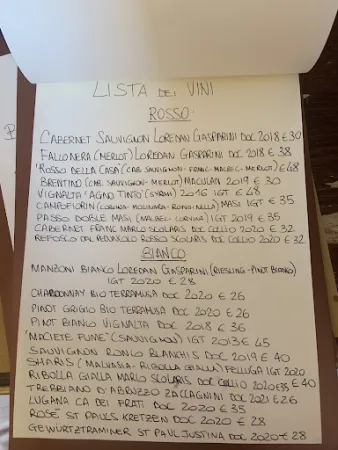 LISTA DEI VINI
ROSSO
CABERNET SAUVIGNON LOREDAN GASPARINI DOC 2018 € 30
FALLONERA (MERLOT) LOREDAN GASPARINI DOC 2018 € 38
"ROSSO DELLA CASA" (CAB. SAUVIGNON - FRANC - MALBEC - MERLOT) € 48
BRENTINO (CAB. SAUVIGNON - MERLOT) MACULAN 2019 € 30
VIGNALTA "AGNO TINTO" (SYRAH) 2016 IGT € 48
CAMPOFIORIN (CORVINA - MOLINARA - RONDINELLA) MASI IGT € 35
PASSO DOBLE MASI (MALBEC - CORVINA) IGT 2019 € 35
CABERNET FRANC MARCO SCOLARIS DOC COLLIO 2020 € 32
REFOSCO DAL PEDUNCOLO ROSSO SCOLARIS DOC COLLIO 2020 € 32
BIANCO
MANZONI BIANCO LOREDAN GASPARINI (RIESLING - PINOT BIANCO)
IGT 2020 € 28
CHARDONNAY BIO TERRAMUSA DOC 2020 € 26
PINOT GRIGIO BIO TERRAMUSA DOC 2020 € 26
PINOT BIANCO VIGNALTA DOC 2018 € 36
"MACIETE FUMÈ" (SAUVIGNON) IGT 2013 € 45
SAUVIGNON RONCO BLANCHIS DOC 2019 € 40
SHARIS (MALVASIA - RIBOLLA GIALLA) FELLUGA IGT 2020
€ 40
RIBOLLA GIALLA MARCO SCOLARIS DOC COLLIO 2020 € 35
TREBBIANO D'ABRUZZO ZACCAGNINI DOC 2021 € 26
LUGANA CA DEI FRATI DOC 2020 € 35
ROSÈ ST PAULS KRETZEN DOC 2020 € 28
GEWÜRTZTRAMINER ST PAUL JUSTINA DOC 2020 € 28